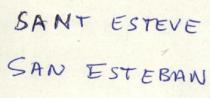 SANT ESTEVE
SAN ESTEBAN